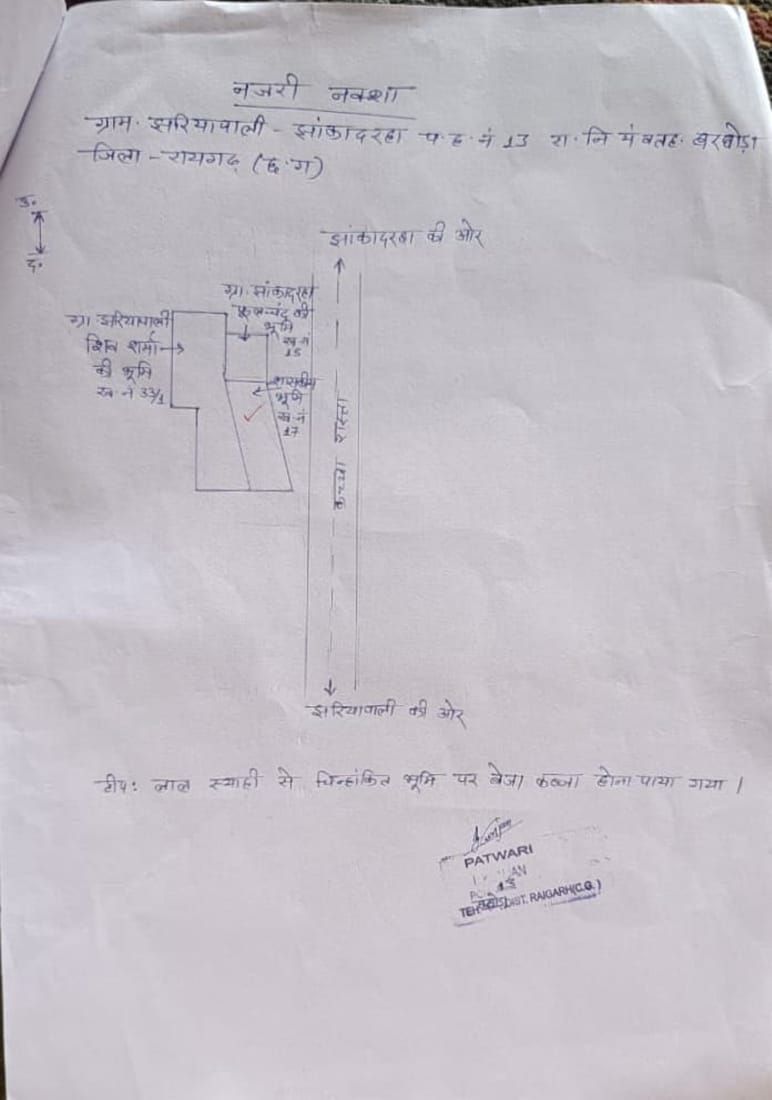 नजरी नक्शा
ग्राम. झरियापाली - झांकादरहा प.ह.नं 13 रा.नि मं व तह. खरसोड़ा
जिला - रायगढ़ (छ.ग)
उ.
द.
झांकादरहा की ओर
ग्रा. झांकादरहा
की
भूमि
ख.नं
15
ग्रा. झरियापाली
शिव शर्मा
की भूमि
ख.नं 33/1
शासकीय
भूमि
ख.नं
17
कच्चा रास्ता
झरियापाली की ओर
टीप: लाल स्याही से चिन्हांकित भूमि पर बेजा कब्जा होना पाया गया ।
PATWARI
13
TEH DIST. RAIGARH(C.G.)